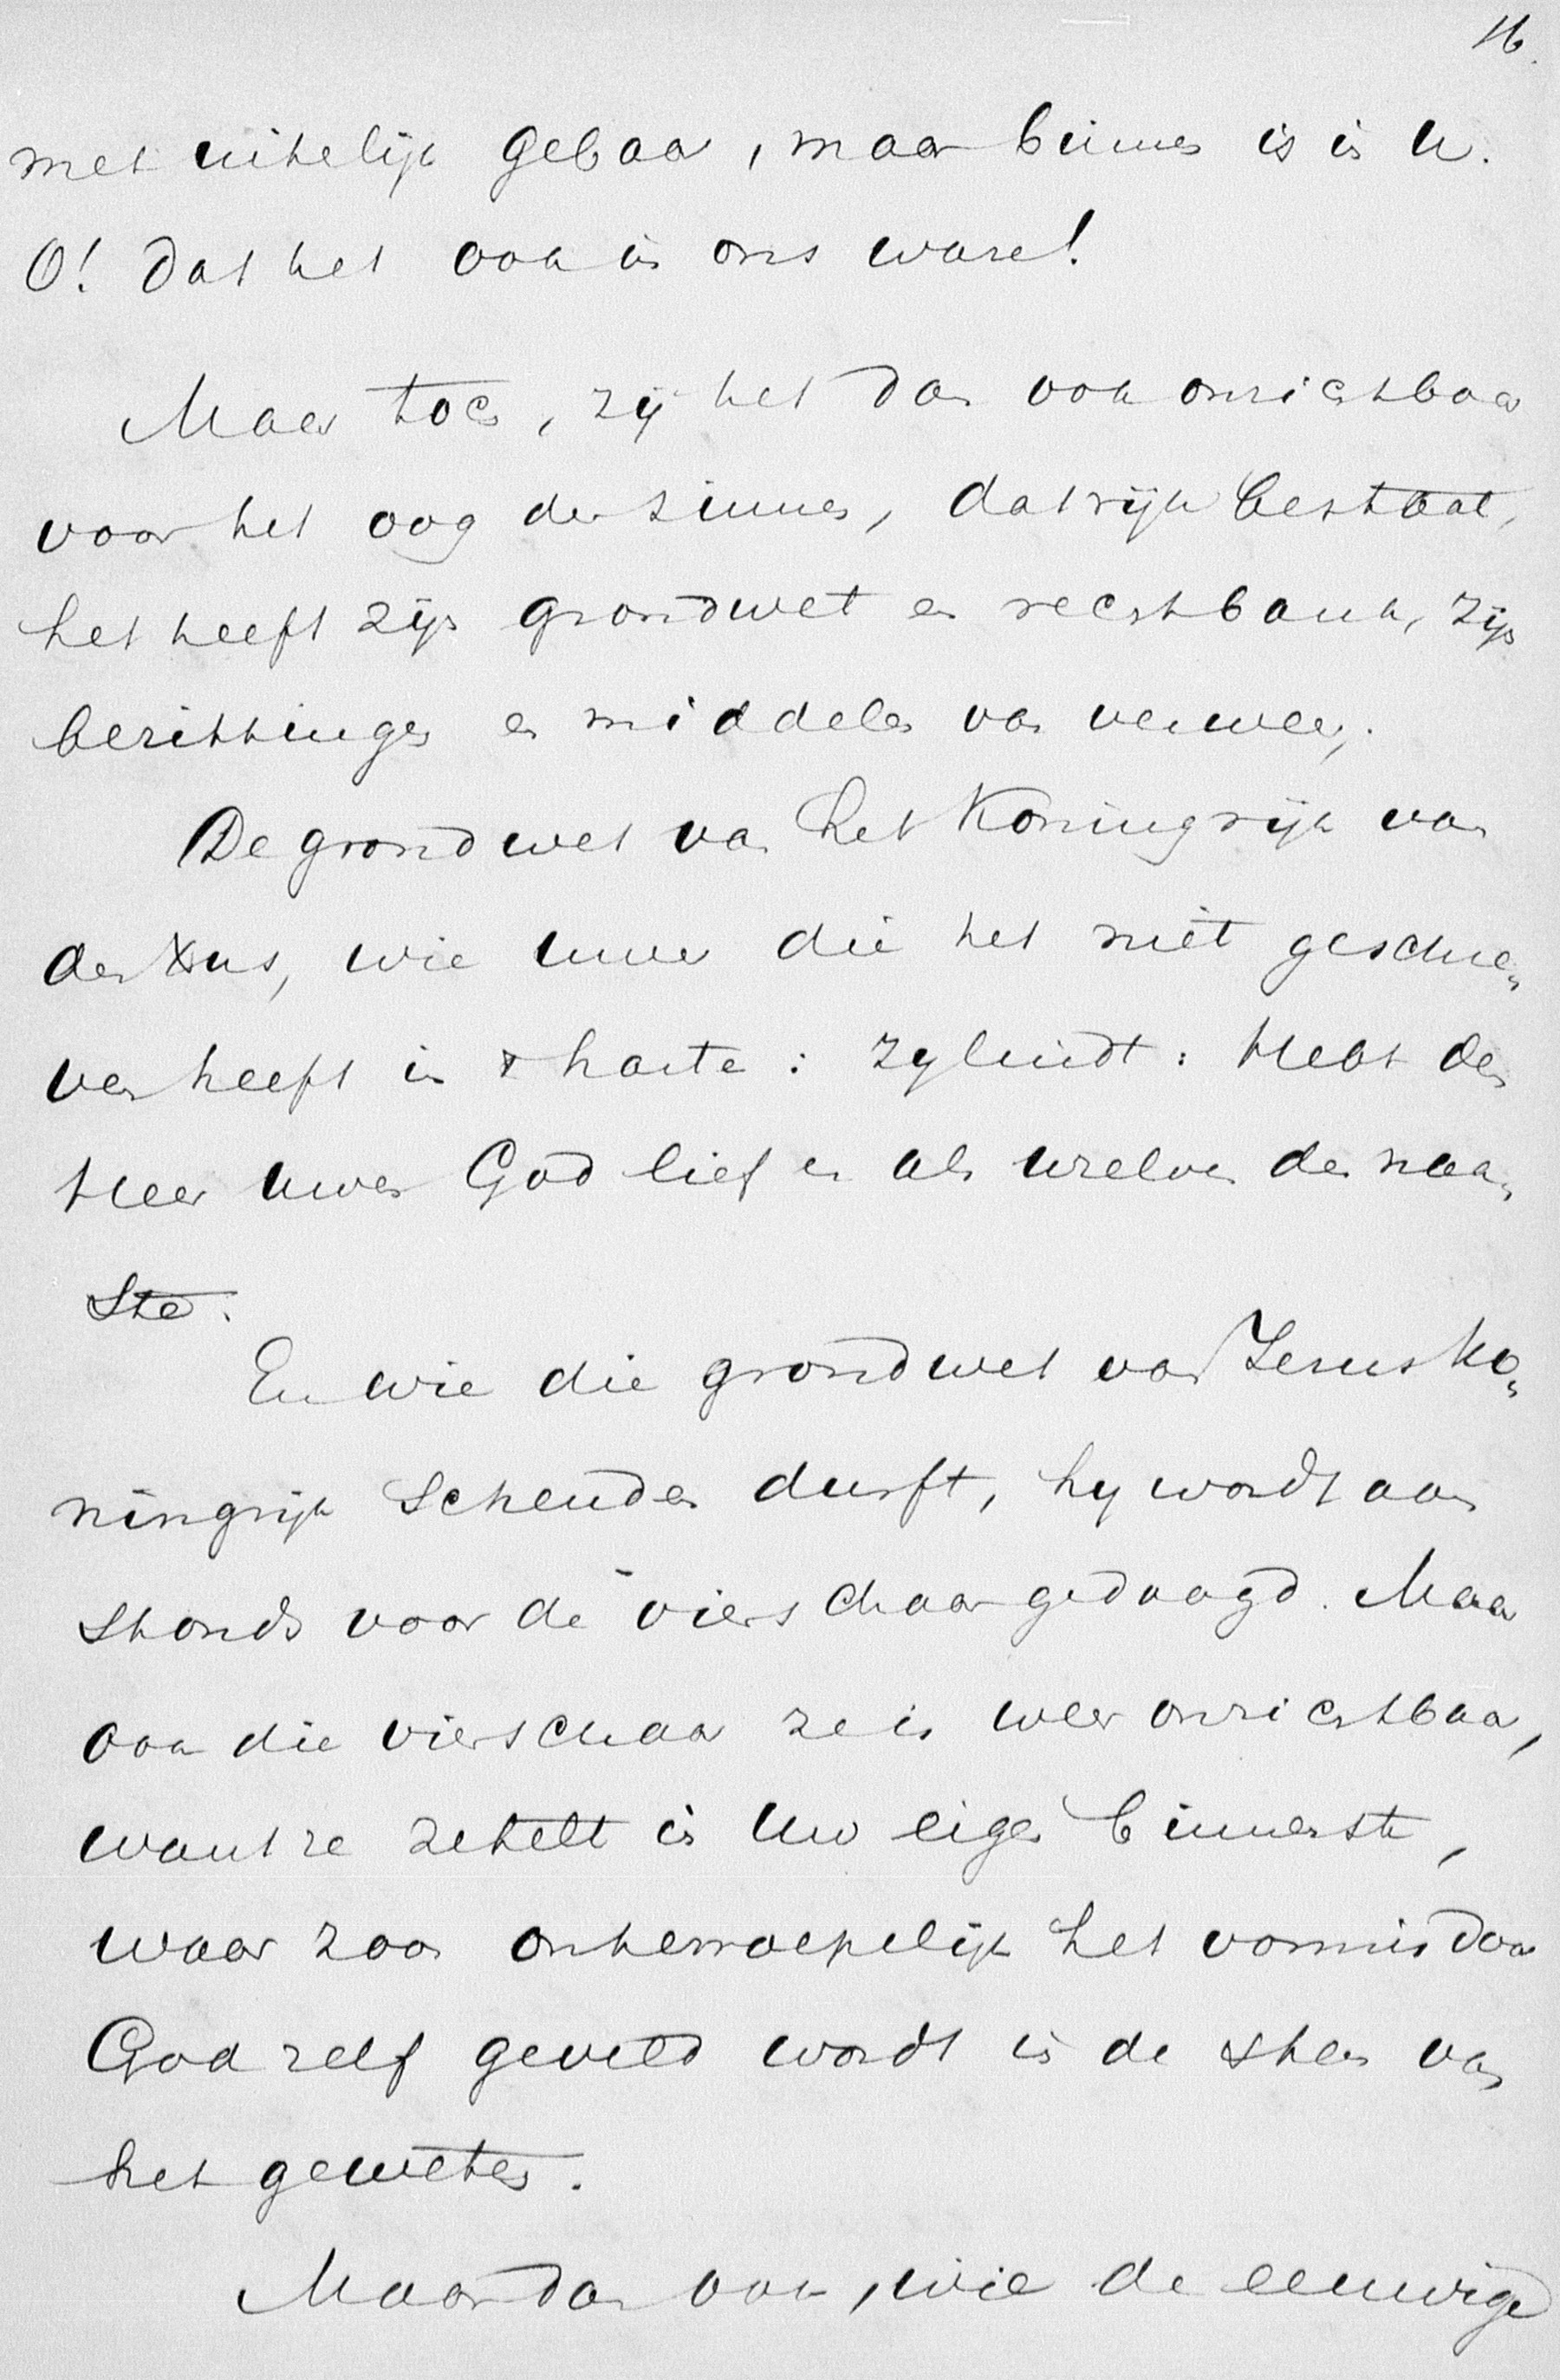 16.
met uiterlijk gebaar, maar binnen is in U.
O! dat het ook in ons ware!
Maar toch, zij het dan ook onzichtbaar
voor het oog der zinnen, dat rijk bestaat,
het heeft zijn grondwet en rechtbank, zijn
bezittingen en middelen van verweer.
De grondwet van het Koningrijk van
den Xus, wie uwer die het niet geschre„
ven heeft in 't harte: zy luidt: Hebt den
Heer uwen God lief en als uzelven den naa„
ste.
En wie die grondwet van Jesus Ko„
ningrijk schenden durft, hy wordt aan
stonds voor de vierschaar gedaagd. Maar
ook die vierschaar ze is weer onzichtbaar,
want ze zetelt in Uw eigen binnenste,
waar zoo onherroepelijk het vonnis door
God zelf geveld wordt in de stem van
het geweten.
Maar dan ook, wie de eeuwige